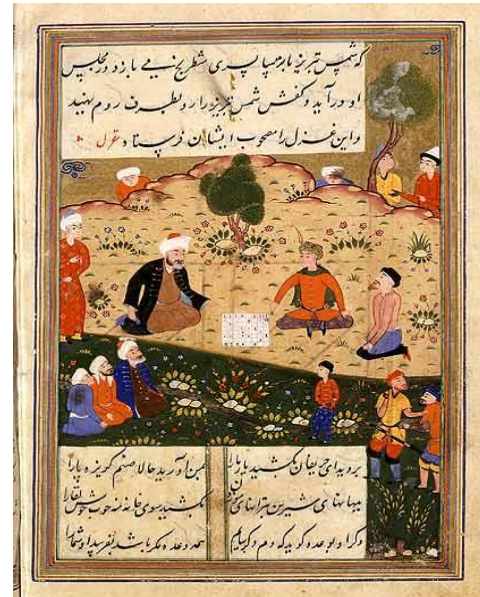 که شمس تبریز با ترسا پسری شطرنج می بازد در مجلس
او در آید و کفش شمس تبریز را رو بطرف روم بنهید
و این غزل را مصحوب ایشان فرستاد غزل
بروید ای حریفان بکشید یار ما را بمن آورید حالا صنم کریزپا را
ببهانهای شیرین بترانهای بکشید سوی خانه مه خوب خوش لقا را
وکر او بوعده کوید که دم دکر بیایم همه وعده مکر باشد بفریبد او شما را